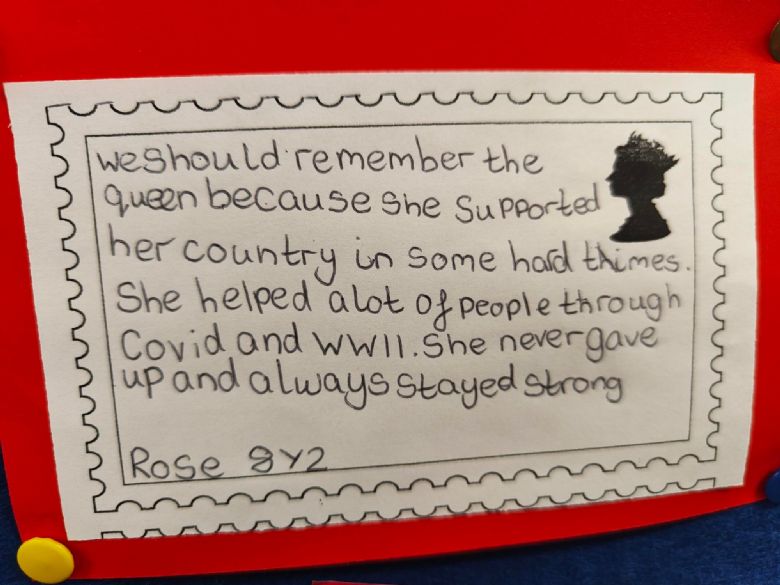 we should remember the
queen because she supported
her country in some hard thimes.
She helped alot of people through
Covid and WWII. She never gave
up and always stayed strong
Rose 8Y2